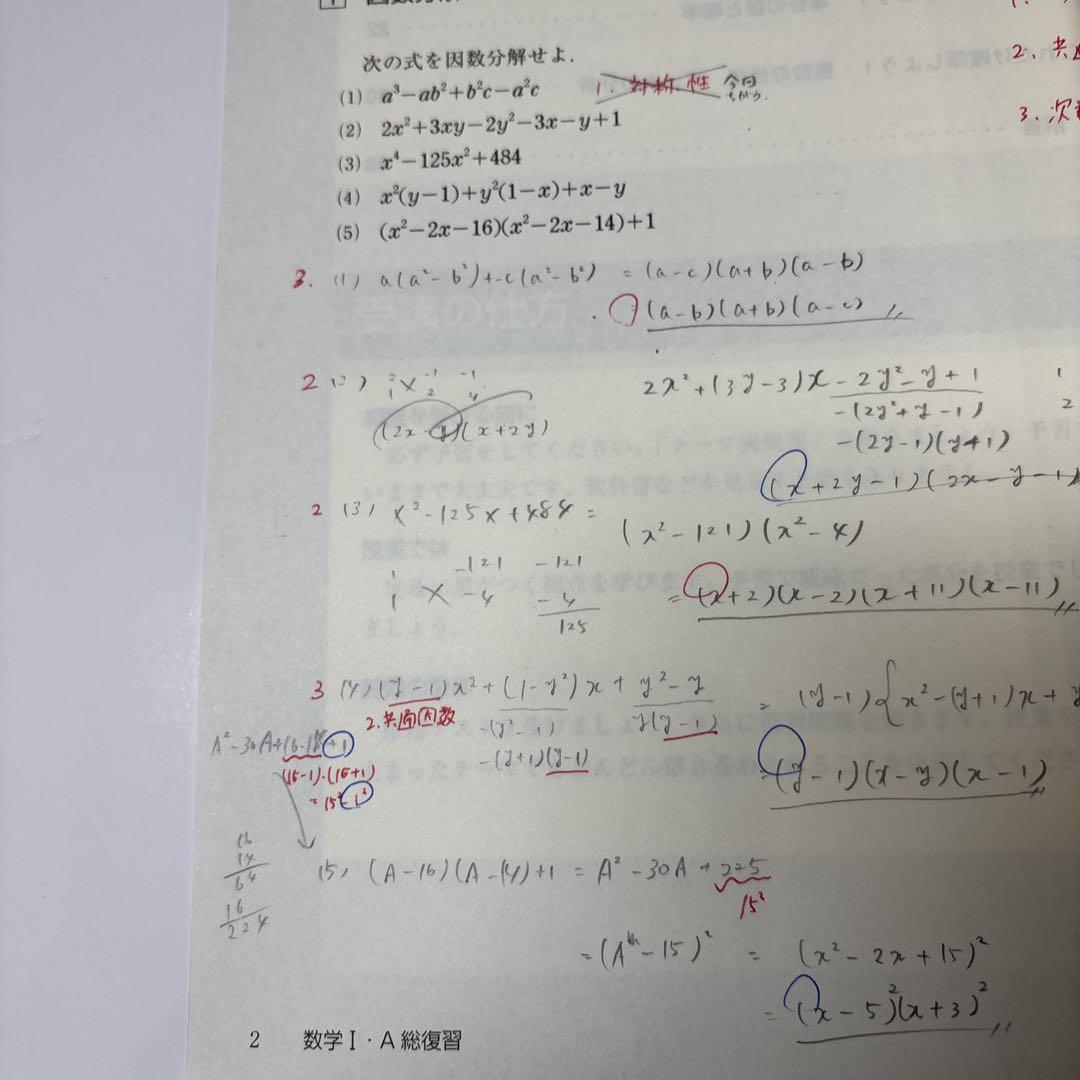 次の式を因数分解せよ.
(1) a³−ab²+b²c−a²c
1. 対称性 今回
(2) 2x²+3xy−2y²−3x−y+1
2. 共
(3) x⁴−125x²+484
3. 次
(4) x²(y−1)+y²(1−x)+x−y
(5) (x²−2x−16)(x²−2x−14)+1
3. (1) a(a²−b²)+-c(a²−b²) =(a−c)(a+b)(a−b)
=(a−b)(a+b)(a−c)
2 (2) 2 −1 −1
1 2 4
(2x−y)(x+2y)
2x²+(3y−3)x−2y²−y+1
−(2y²+y−1)
−(2y−1)(y+1)
(x+2y−1)(2x−y−1)
2 (3) x²−125x+484=
(x²−121)(x²−4)
1 −121 −121
1 −4 −4
125
=(x+2)(x−2)(x+11)(x−11)
3 (4) (y−1)x²+(1−y²)x+y²−y
2.共通因数
−(y²−1) y(y−1)
−(y+1)(y−1)
=(y−1){x²−(y+1)x+y
=(y−1)(x−y)(x−1)
A²−30A+16·14+1
(15−1)·(15+1)
=15²−1²
16
14
64
16
224
(5) (A−16)(A−14)+1=A²−30A+225
15²
=(A−15)² = (x²−2x+15)²
=(x−5)²(x+3)²
2 数学Ⅰ・A 総復習